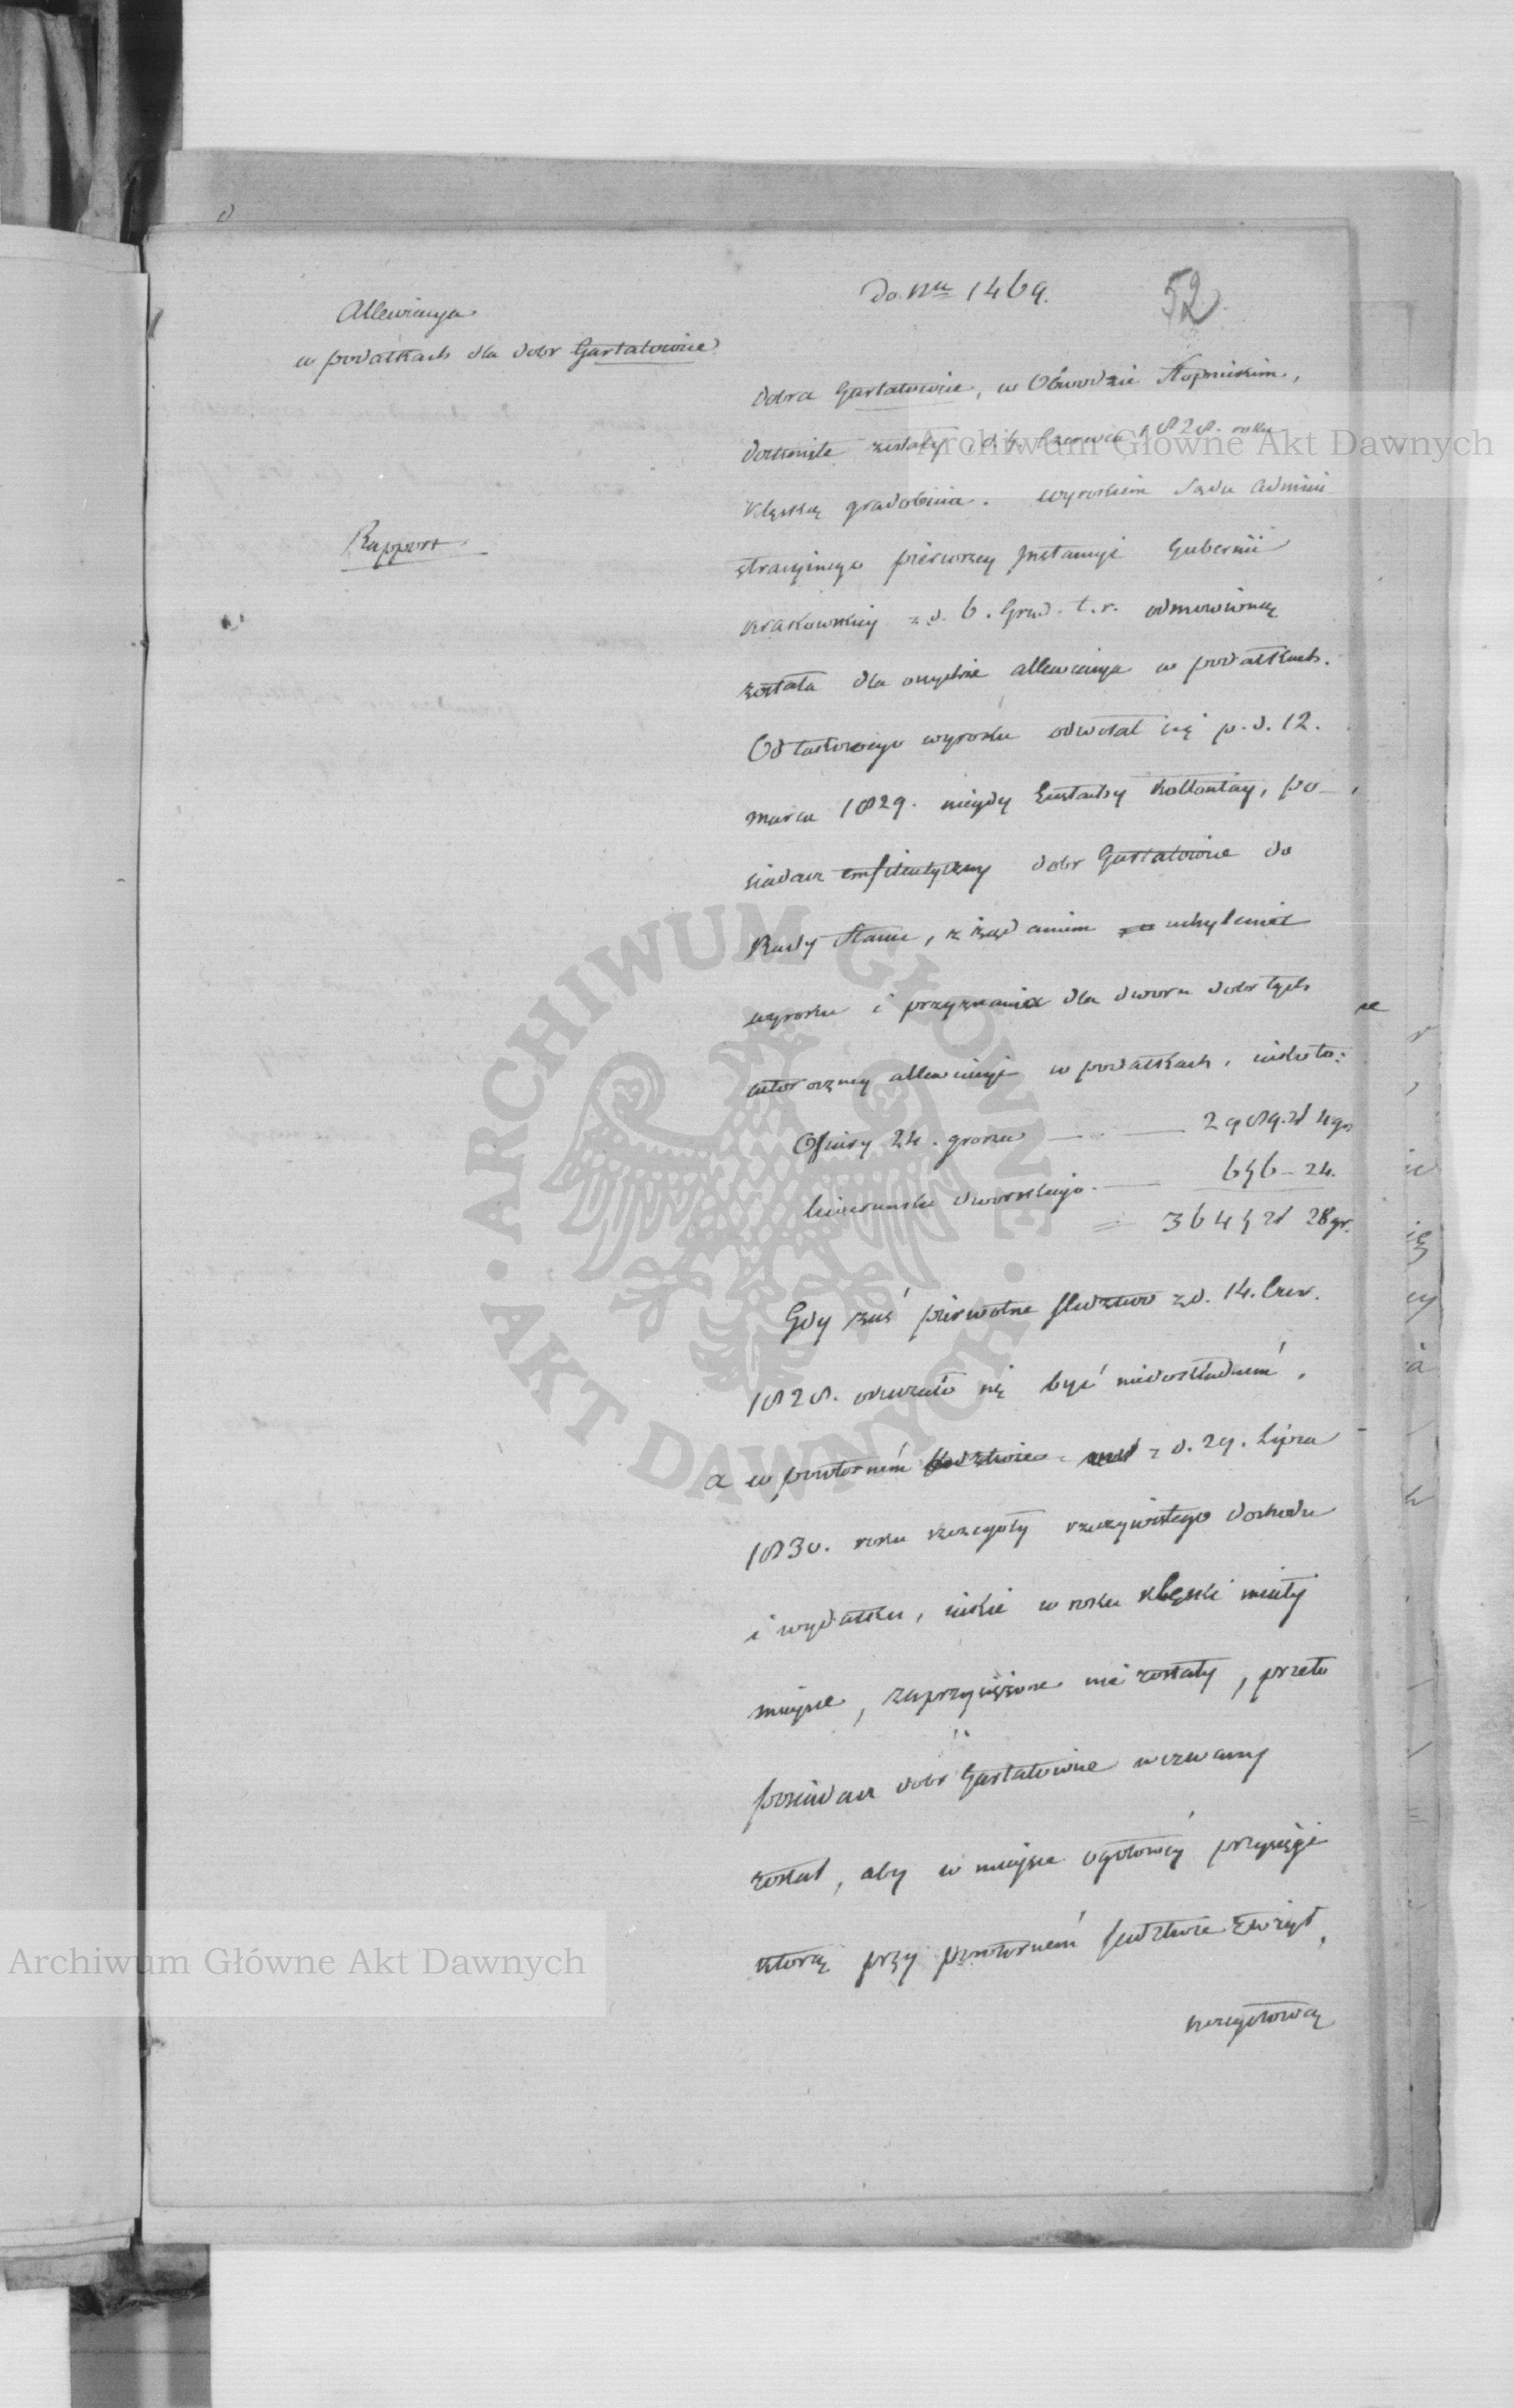 do Nru 1469.
52
Allewiacya
w podatkach dla dobr Gartatowice
Rapport
Dobra Gartatowice, w Obwodzie Stopnickim,
dotknięte zostały d. 4. Czerwca 1828. roku
klęską gradobicia. Wyrokiem Sądu Admini
stracyinego pierwszey Instancyi Gubernii
Krakowskiey z d. 6. Grud. t. r. odmowioną
została dla onychże allewiacya w podatkach.
Od takowego wyroku odwołał się p. d. 12.
Marca 1829. niegdy Eustachy Kołłontay, po-
siadacz emfiteutyczny dobr Gartatowice do
Rady Stanu, z żądaniem uchylenia
wyroku i przyznania dla dworu dobr tych
allewiacyi w podatkach, iako to:
Ofiary 24. grosza 2989. zł 4 gr
liwerunku dworskiego. 656 - 24.
= 3645 zł 28 gr.
Gdy zaś pierwotne śledztwo z d. 14. Czer.
1828. okazało się być niedokładném,
a w powtorném z d. 29. Lipca
1830. roku szczegóły rzeczywistego dochodu
i wydatku, iakie w roku klęski miały
mieysce, zaprzysiężone nie zostały, przeto
posiadacz dobr Gartatowice wezwany
został, aby w mieysce ogołowéy przysięgi
którą przy powtorném śledztwie złożył,
szczegołową
Archiwum Główne Akt Dawnych
ARCHIWUM GŁÓWNE AKT DAWNYCH
Archiwum Główne Akt Dawnych